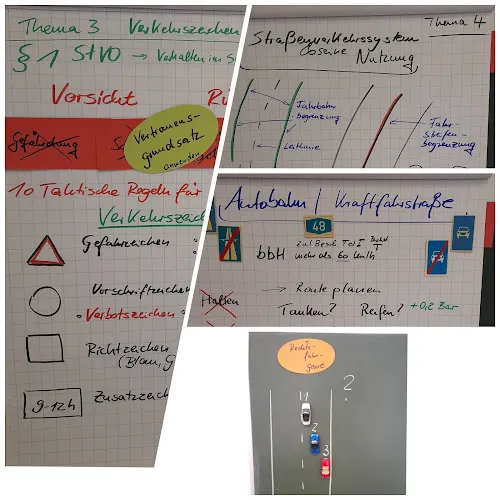 Thema 3 Verkehrszeichen
§ 1 StVO → Verhalten im S
Vorsicht Rü
Gefährdung
Vertrauens-
grundsatz
anwenden
10 Taktische Regeln für
Verkehrszeich
Gefahrzeichen
Vorschriftzeichen
• Verbotszeichen
Richtzeichen
(Blau, G
9-12h
Zusatzzeich
Thema 4
Straßenverkehrssystem
Nutzung
Fahrbahn
begrenzung
Leitlinie
Fahr-
streifen-
begrenzung
Autobahn / Kraftfahrstraße
48
bbH
mehr als 60 km/h
Halten
→ Route planen
Tanken? Reifen? +0,2 Bar
Rechts-
fahr-
Gebot
?
1
2
3